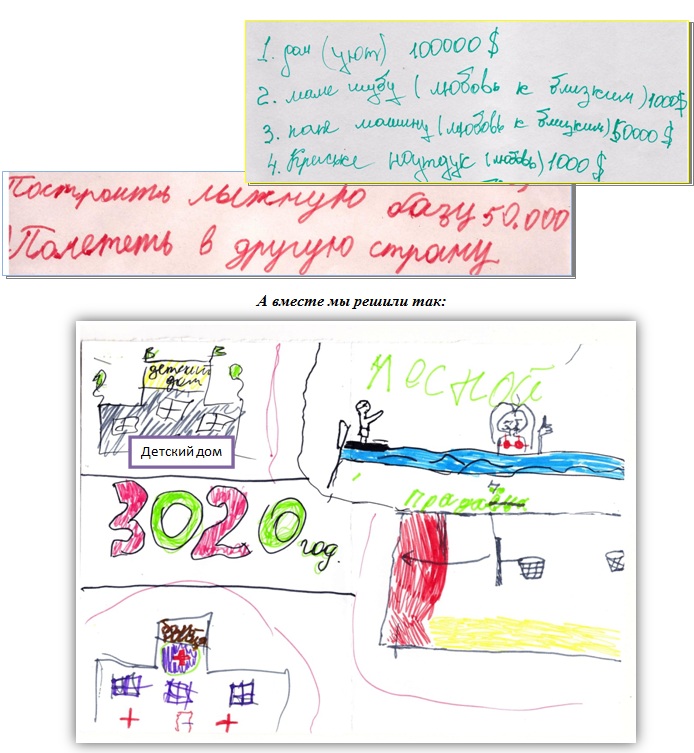 1. дом (уют) 100000 $
2. маме шубу (любовь к близким) 1000$
3. папе машину (любовь к близким) 50000 $
4. Крыське ноутбук (любовь) 1000 $
Построить лыжную базу 50.000
Полететь в другую страну
А вместе мы решили так:
детский
дом
Детский дом
Лесной
3020 год.